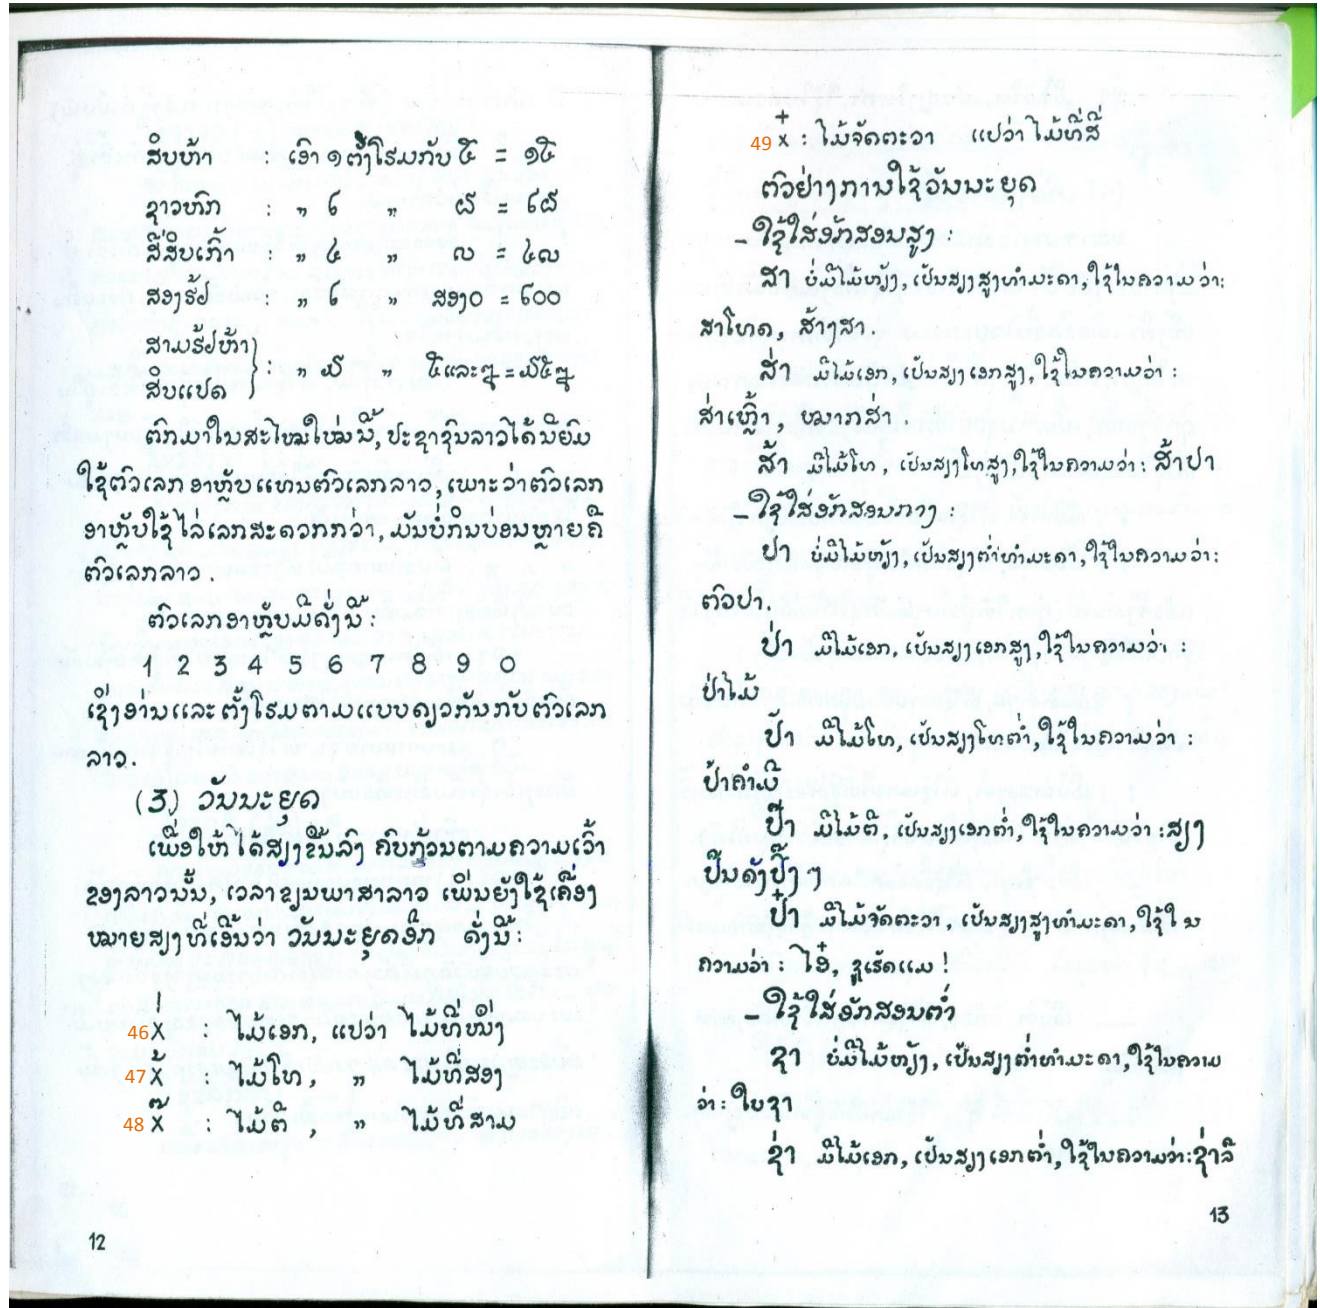 ສິບຫ້າ : ເອົາ ໑ ຕັ້ງໂຮມກັບ ໕ = ໑໕
ຊາວຫົກ : „ ໒ „ ໖ = ໒໖
ສີ່ສິບເກົ້າ : „ ໔ „ ໙ = ໔໙
ສອງຮ້ອຽ : „ ໒ „ ສອງ໐ = ໒໐໐
ສາມຮ້ອຽຫ້າ)
ສິບແປດ ) : „ ໓ „ ໕ແລະ໘ = ໓໕໘
ຕົກມາໃນສະໄໝໃໝ່ນີ້, ປະຊາຊົນລາວໄດ້ນິຍົມ
ໃຊ້ຕົວເລກອາຫຼັບແທນຕົວເລກລາວ, ເພາະວ່າຕົວເລກ
ອາຫຼັບໃຊ້ໄລ່ເລກສະດວກກວ່າ, ມັນບໍ່ກິນບ່ອນຫຼາຍຄື
ຕົວເລກລາວ.
ຕົວເລກອາຫຼັບມີດັ່ງນີ້:
1 2 3 4 5 6 7 8 9 0
ເຊິ່ງອ່ານແລະຕັ້ງໂຮມຕາມແບບດຽວກັນກັບຕົວເລກ
ລາວ.
(3.) ວັນນະຍຸດ
ເພື່ອໃຫ້ໄດ້ສຽງຂຶ້ນລົງ ຄົບຖ້ວນຕາມຄວາມເວົ້າ
ຂອງລາວນັ້ນ, ເວລາຂຽນພາສາລາວ ເພິ່ນຍັງໃຊ້ເຄື່ອງ
ໝາຍສຽງທີ່ເອີ້ນວ່າ ວັນນະຍຸດອີກ ດັ່ງນີ້:
46 x່ : ໄມ້ເອກ, ແປວ່າ ໄມ້ທີ່ໜຶ່ງ
47 x້ : ໄມ້ໂທ, „ ໄມ້ທີ່ສອງ
48 x໊ : ໄມ້ຕີ, „ ໄມ້ທີ່ສາມ
12
49 x໋ : ໄມ້ຈັດຕະວາ ແປວ່າ ໄມ້ທີ່ສີ່
ຕົວຢ່າງການໃຊ້ວັນນະຍຸດ
– ໃຊ້ໃສ່ອັກສອນສູງ
ສາ ບໍ່ມີໄມ້ຫຍັງ, ເປັນສຽງສູງທຳມະດາ, ໃຊ້ໃນຄວາມວ່າ:
ສາໂຫດ, ສ້າງສາ.
ສ່າ ມີໄມ້ເອກ, ເປັນສຽງເອກສູງ, ໃຊ້ໃນຄວາມວ່າ :
ສ່າເຫຼົ້າ, ໝາກສ່າ
ສ້າ ມີໄມ້ໂທ, ເປັນສຽງໂທສູງ, ໃຊ້ໃນຄວາມວ່າ: ສ້າປາ
– ໃຊ້ໃສ່ອັກສອນກາງ
ປາ ບໍ່ມີໄມ້ຫຍັງ, ເປັນສຽງຕ່ຳທຳມະດາ, ໃຊ້ໃນຄວາມວ່າ:
ຕົວປາ.
ປ່າ ມີໄມ້ເອກ, ເປັນສຽງເອກສູງ, ໃຊ້ໃນຄວາມວ່າ :
ປ່າໄມ້
ປ້າ ມີໄມ້ໂທ, ເປັນສຽງໂທຕ່ຳ, ໃຊ້ໃນຄວາມວ່າ
ປ້າຄຳມີ
ປ໊າ ມີໄມ້ຕີ, ເປັນສຽງເອກຕ່ຳ, ໃຊ້ໃນຄວາມວ່າ : ສຽງ
ປືນດັງປ໊າງໆ
ປ໋າ ມີໄມ້ຈັດຕະວາ, ເປັນສຽງສູງທຳມະດາ, ໃຊ້ໃນ
ຄວາມວ່າ : ໂອ໋, ຊູເຮັດແມ !
– ໃຊ້ໃສ່ອັກສອນຕ່ຳ
ຊາ ບໍ່ມີໄມ້ຫຍັງ, ເປັນສຽງຕ່ຳທຳມະດາ, ໃຊ້ໃນຄວາມ
ວ່າ: ໃບຊາ
ຊ່າ ມີໄມ້ເອກ, ເປັນສຽງເອກຕ່ຳ, ໃຊ້ໃນຄວາມວ່າ: ຊ່າລື
13